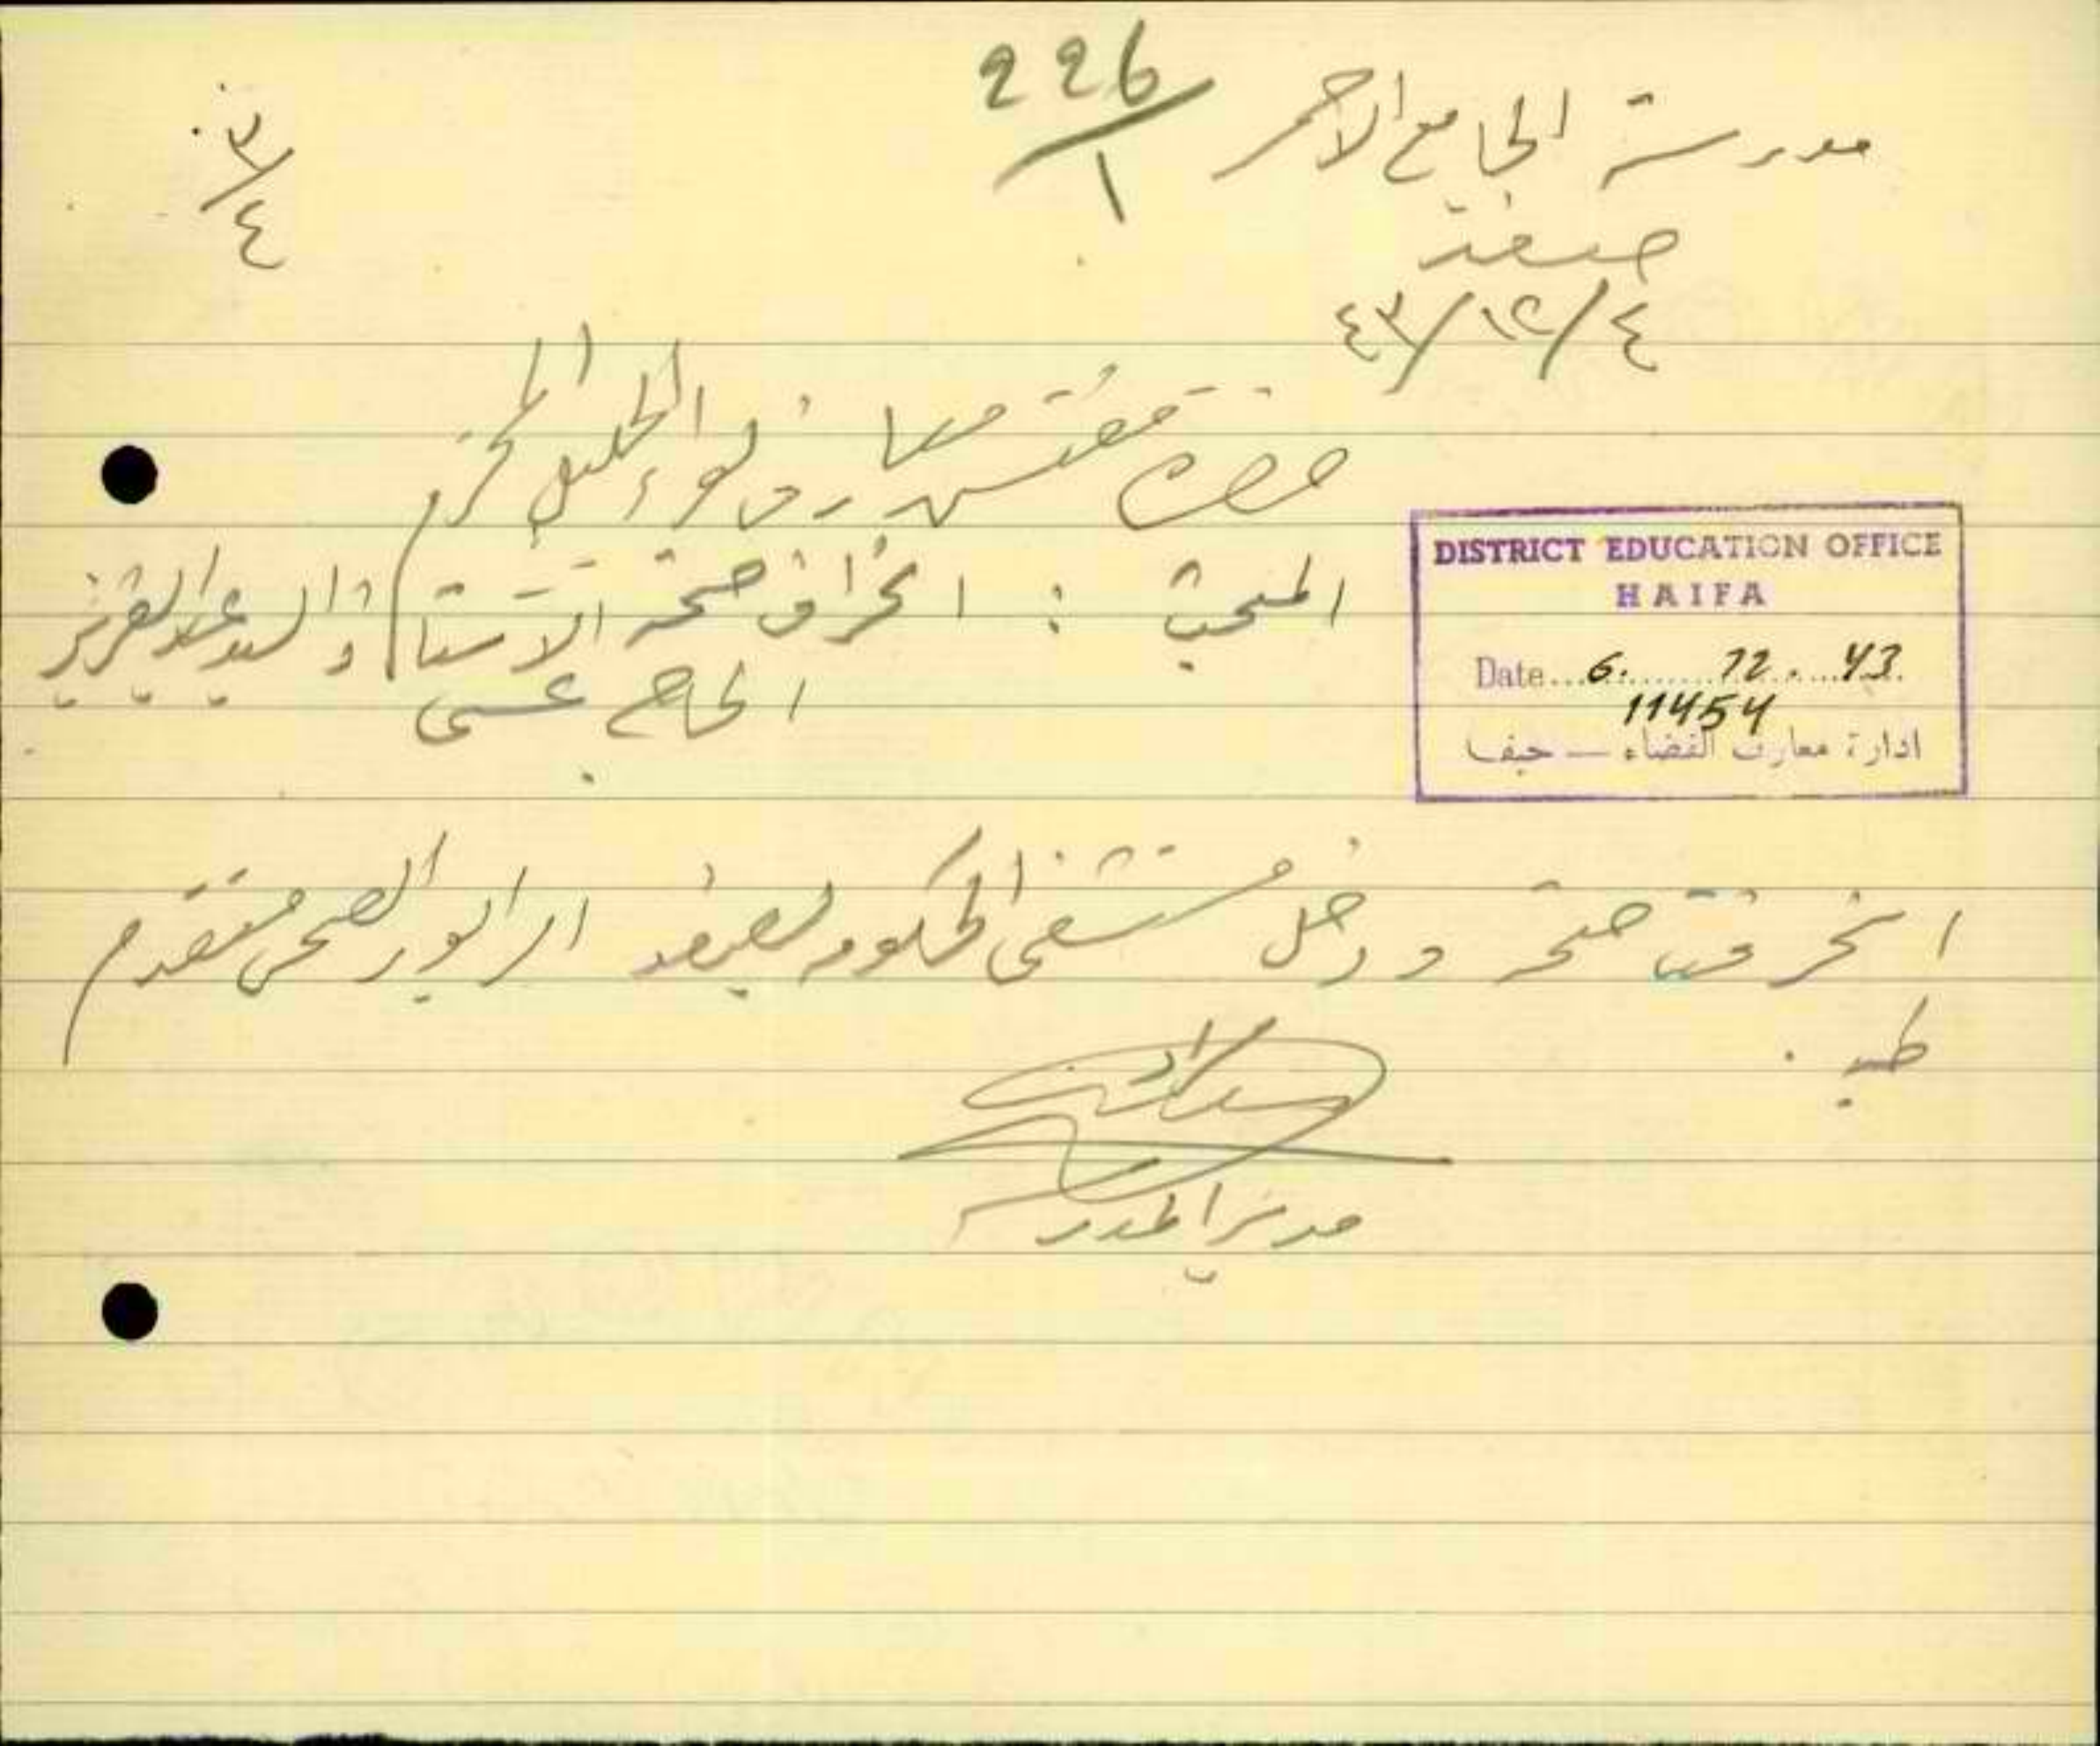 226/1
مدرسة الجامع الاحمر
صفد
٤/١٢/٤٣
٣/٤
حضرة مفتش معارف لواء الجليل المحترم
المبحث : انحراف صحة الاستاذ السيد عبد العزيز
الحاج عيسى
DISTRICT EDUCATION OFFICE
HAIFA
Date...6. 12. 43.
11454
ادارة معارف القضاء — حيفا
انحرفت صحة ودخل مستشفى الحكومة بصفد اما التقرير الصحي فيقدم
طيه .
مدير المدرسة